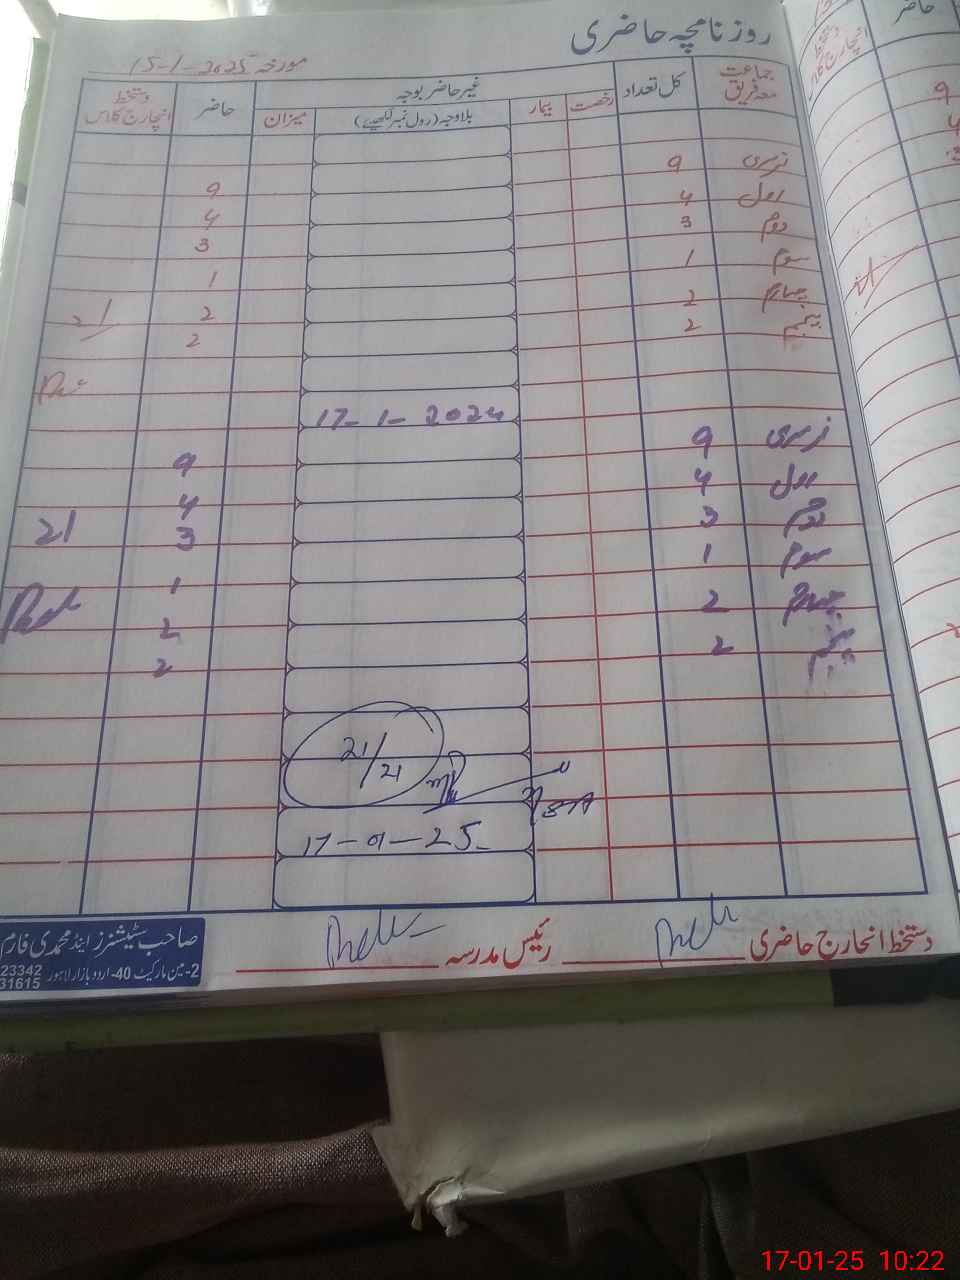 روزنامچہ حاضری
مورخہ 15-1-2025
جماعت معہ فریق کل تعداد غیر حاضر بوجہ حاضر دستخط انچارج کلاس
رخصت بیمار بلاوجہ (رول نمبر لکھیے) میزان
نرسری 9 9
اول 4 4
دوم 3 3
سوم 1 1
چہارم 2 2 21
پنجم 2 2
17-1-2024
نرسری 9 9
اول 4 4
دوم 3 3 21
سوم 1 1
چہارم 2 2
پنجم 2 2
21/21
17-01-25
دستخط انچارج حاضری رئیس مدرسہ
صاحب سٹیشنرز اینڈ محمدی فارم
2-مین مارکیٹ 40-اردو بازار لاہور 23342
31615
حاضر
دستخط انچارج کلاس
9
4
17-01-25 10:22